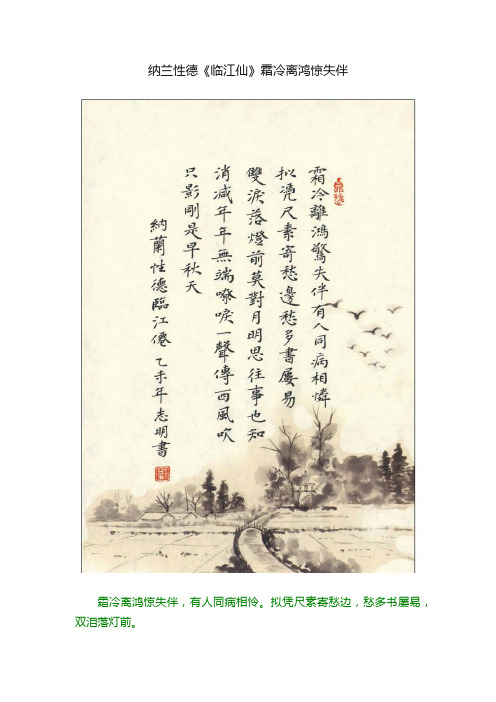 纳兰性德《临江仙》霜冷离鸿惊失伴
霜冷離鴻驚失伴有人同病相憐
拟凭尺素寄愁邊愁多書屢易
雙淚落燈前莫對月明思往事也知
消减年年無端嘹唳一聲傳西風吹
只影剛是早秋天
納蘭性德臨江僊 乙未年志明書
霜冷离鸿惊失伴，有人同病相怜。拟凭尺素寄愁边，愁多书屡易，
双泪落灯前。